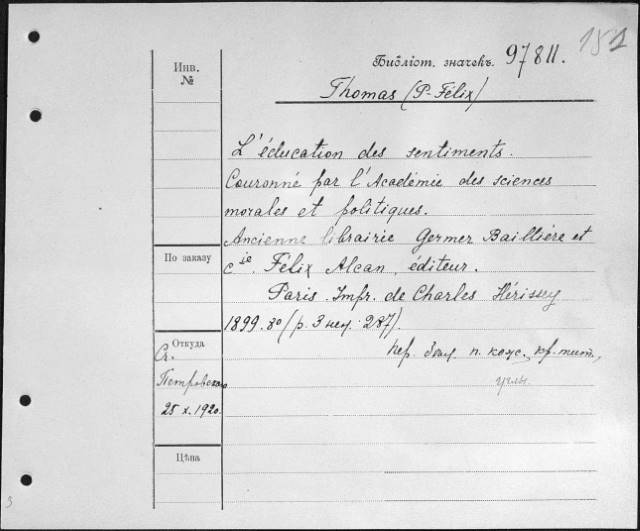 151
Библіот. значекъ. 97811.
Thomas (P-Félix)
Инв.
№
L'éducation des sentiments.
Couronné par l'Académie des sciences
morales et politiques.
Ancienne librairie Germer Baillière et
Cie. Félix Alcan, éditeur.
Paris. Impr. de Charles Hérissey
1899. 8o (p. 3 неу. 287).
пер. п. кож., кр. тит.,
углы.
По заказу
Откуда
Ст.
Петровского
25 X. 1920.
Цѣна
3